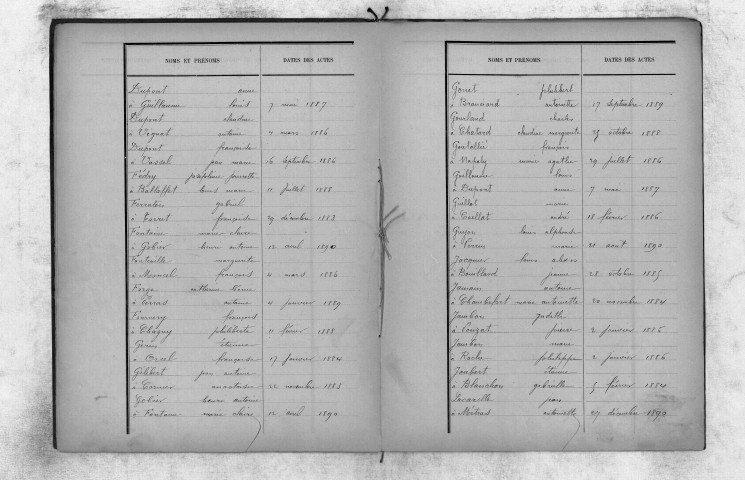 NOMS ET PRÉNOMS DATES DES ACTES
Dupont anne
à Guillaume louis 7 mai 1887
Dupont claudine
à Vignat antoine 4 mars 1886
Dupont françoise
à Vassel jean marie 16 septembre 1886
Fédry joséphine pierrette
à Balloffet marie 11 juillet 1888
Ferratou gabriel
à françoise 29 décembre 1883
Fontaine marie claire
à Gobier antoine 12 avril 1890
marguerite
à Moncel françois 4 mars 1886
Forge
à Perras antoine 4 janvier 1889
françois
à Chagny philiberte 11 février 1888
Germ étienne
à Orcel françoise 17 janvier 1884
Gilibert antoine
à Cornier 22 novembre 1883
Gobier antoine
à Fontaine marie claire 12 avril 1890
NOMS ET PRÉNOMS DATES DES ACTES
Gonet philibert
à antoinette 17 septembre 1889
Gourland charles
à Chatard claudine marguerite 25 octobre 1888
françois
à Napoly marie agathe 29 juillet 1886
Guillaume louis
à Dupont anne 7 mai 1887
Guillot marie
à andré 18 février 1886
Guyon louis alphonse
à Perrin marie 21 août 1890
Jacquier louis alexis
à Bouillard jeanne 28 octobre 1885
antoine
à marie antoinette 20 novembre 1884
Jambon judith
à pierre 2 janvier 1886
Jambon marie
à Roche philippe 2 janvier 1886
Joubert étienne
à Blanchon gabrielle 5 février 1884
Lacarelle
à Métras antoinette 27 décembre 1890